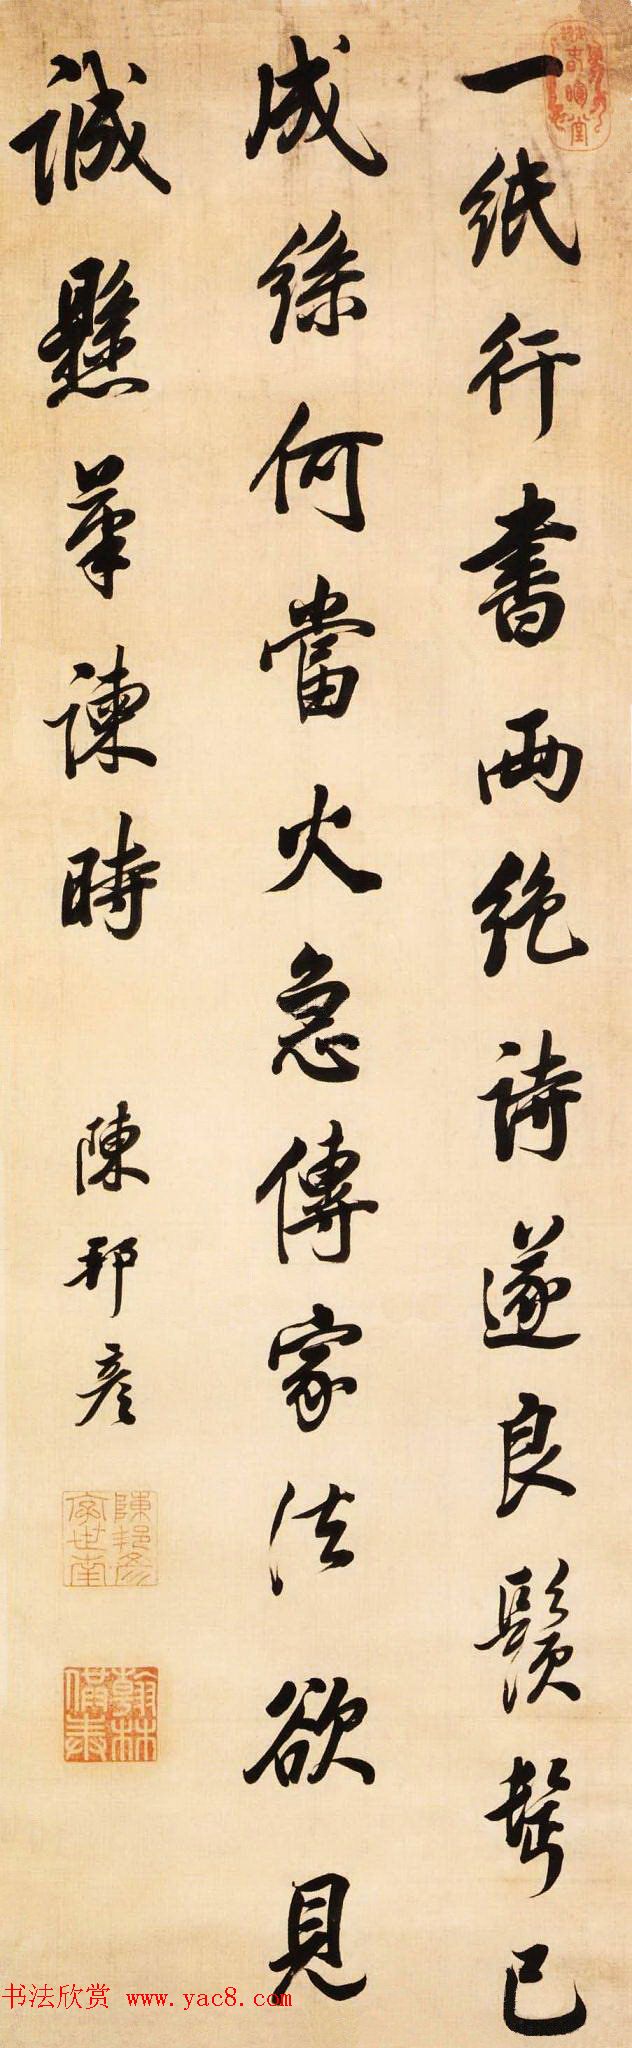 一紙行書兩絕詩遂良鬚髩已
成絲何當火急傳家法欲見
誠懸筆諫時
陳邦彥
陳邦彥
書法欣赏 www.yac8.com